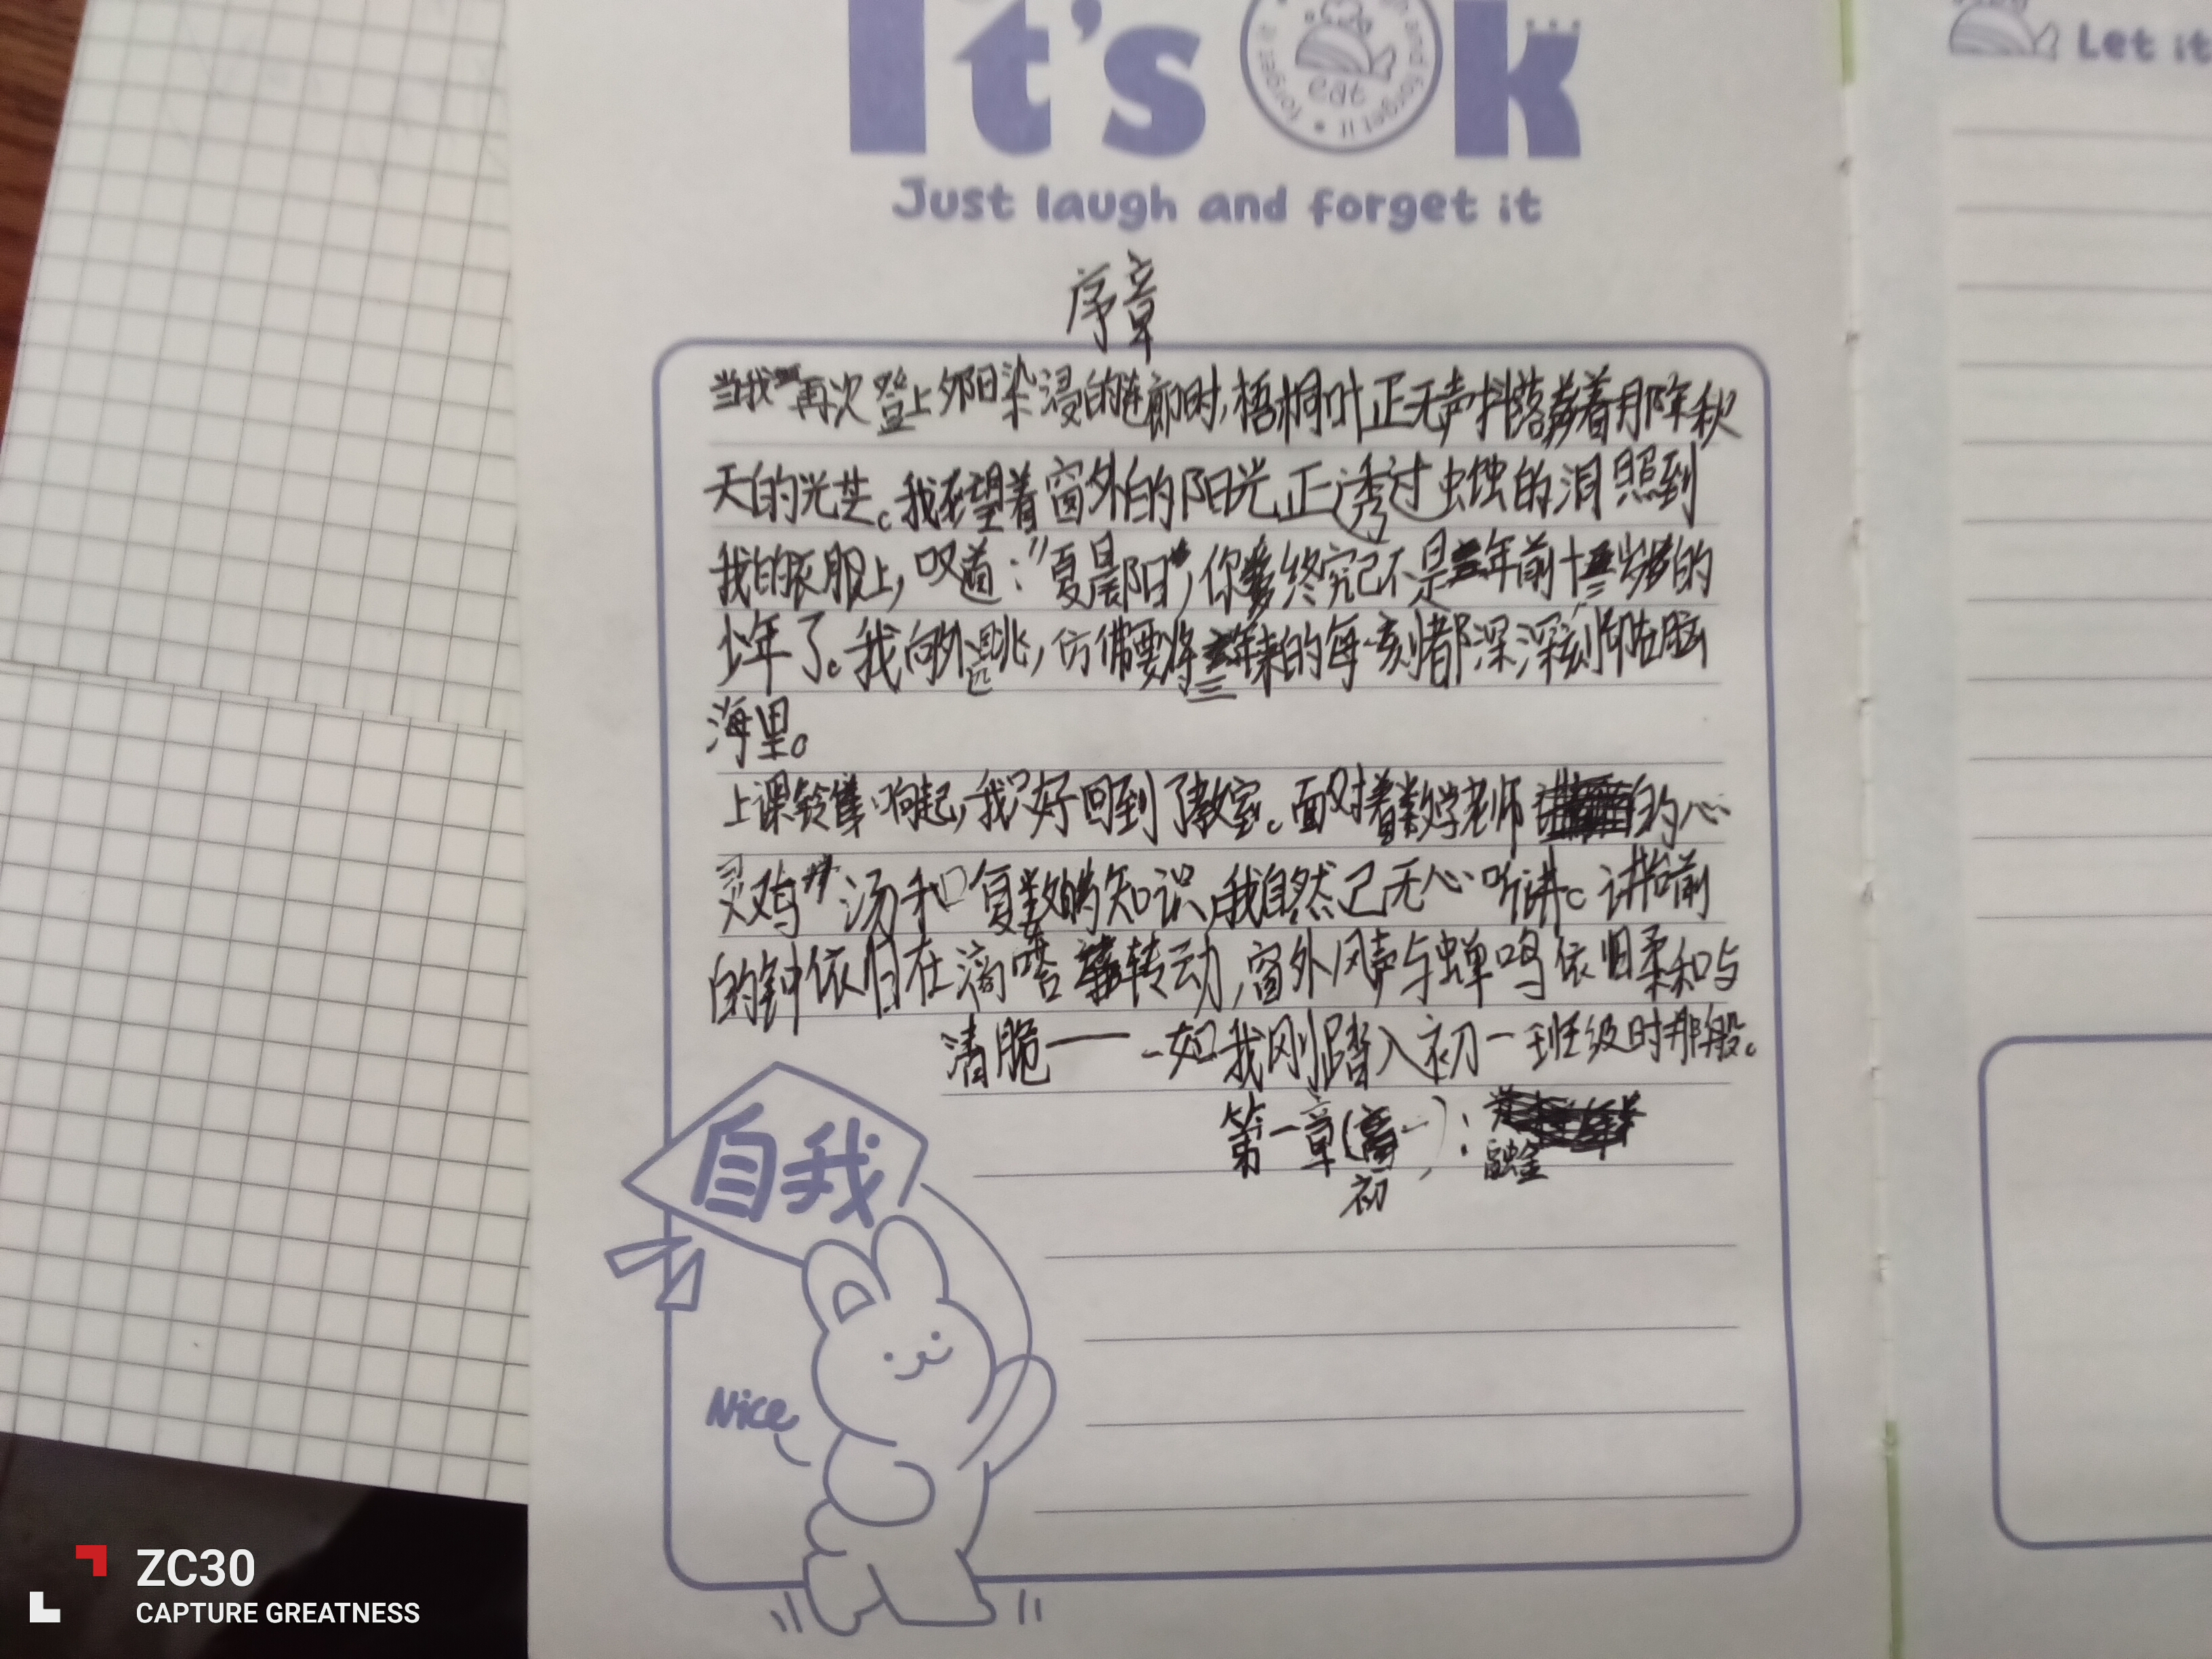 It's Ok
eat
Just laugh and forget it
Let it
序章
当我再次登上夕阳染浸的连廊时,梧桐叶正无声抖落着那年秋
天的光芒。我望着窗外的阳光正透过虫蚀的洞照到
我的衣服上,叹道:"夏晨阳",你终究已不是三年前十三岁的
少年了。我向外远眺,仿佛要将三年来的每一刻都深深刻印在脑
海里。
上课铃声响起,我只好回到了教室。面对着数学老师的心
灵鸡汤和复数的知识,我自然已无心听讲。讲台前
的钟依旧在滴嗒转动,窗外风声与蝉鸣依旧柔和与
清脆——一如我刚踏入初一班级时那般。
第一章(初一):融金
自我
Nice
ZC30
CAPTURE GREATNESS